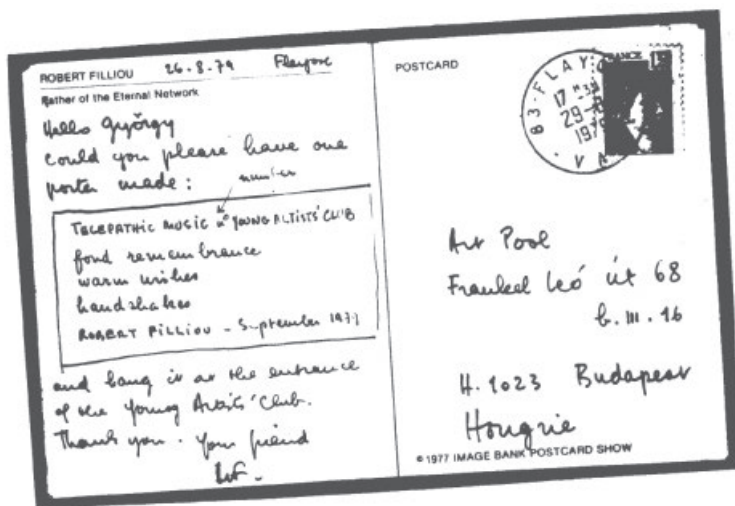 ROBERT FILLIOU 26-8-79 Flayosc
Father of the Eternal Network
Hello György
could you please have one
poster made:
number
TELEPATHIC MUSIC n° YOUNG ARTISTS' CLUB
fond remembrance
warm wishes
handshakes
ROBERT FILLIOU - September 1979
and hang it at the entrance
of the Young Artists' Club.
Thank you. Your friend
POSTCARD
83-FLAYOSC
17 H
29-8
1979
VAR
FRANCE
Art Pool
Frankel Leó út 68
b. III. 16
H. 1023 Budapest
Hongrie
© 1977 IMAGE BANK POSTCARD SHOW